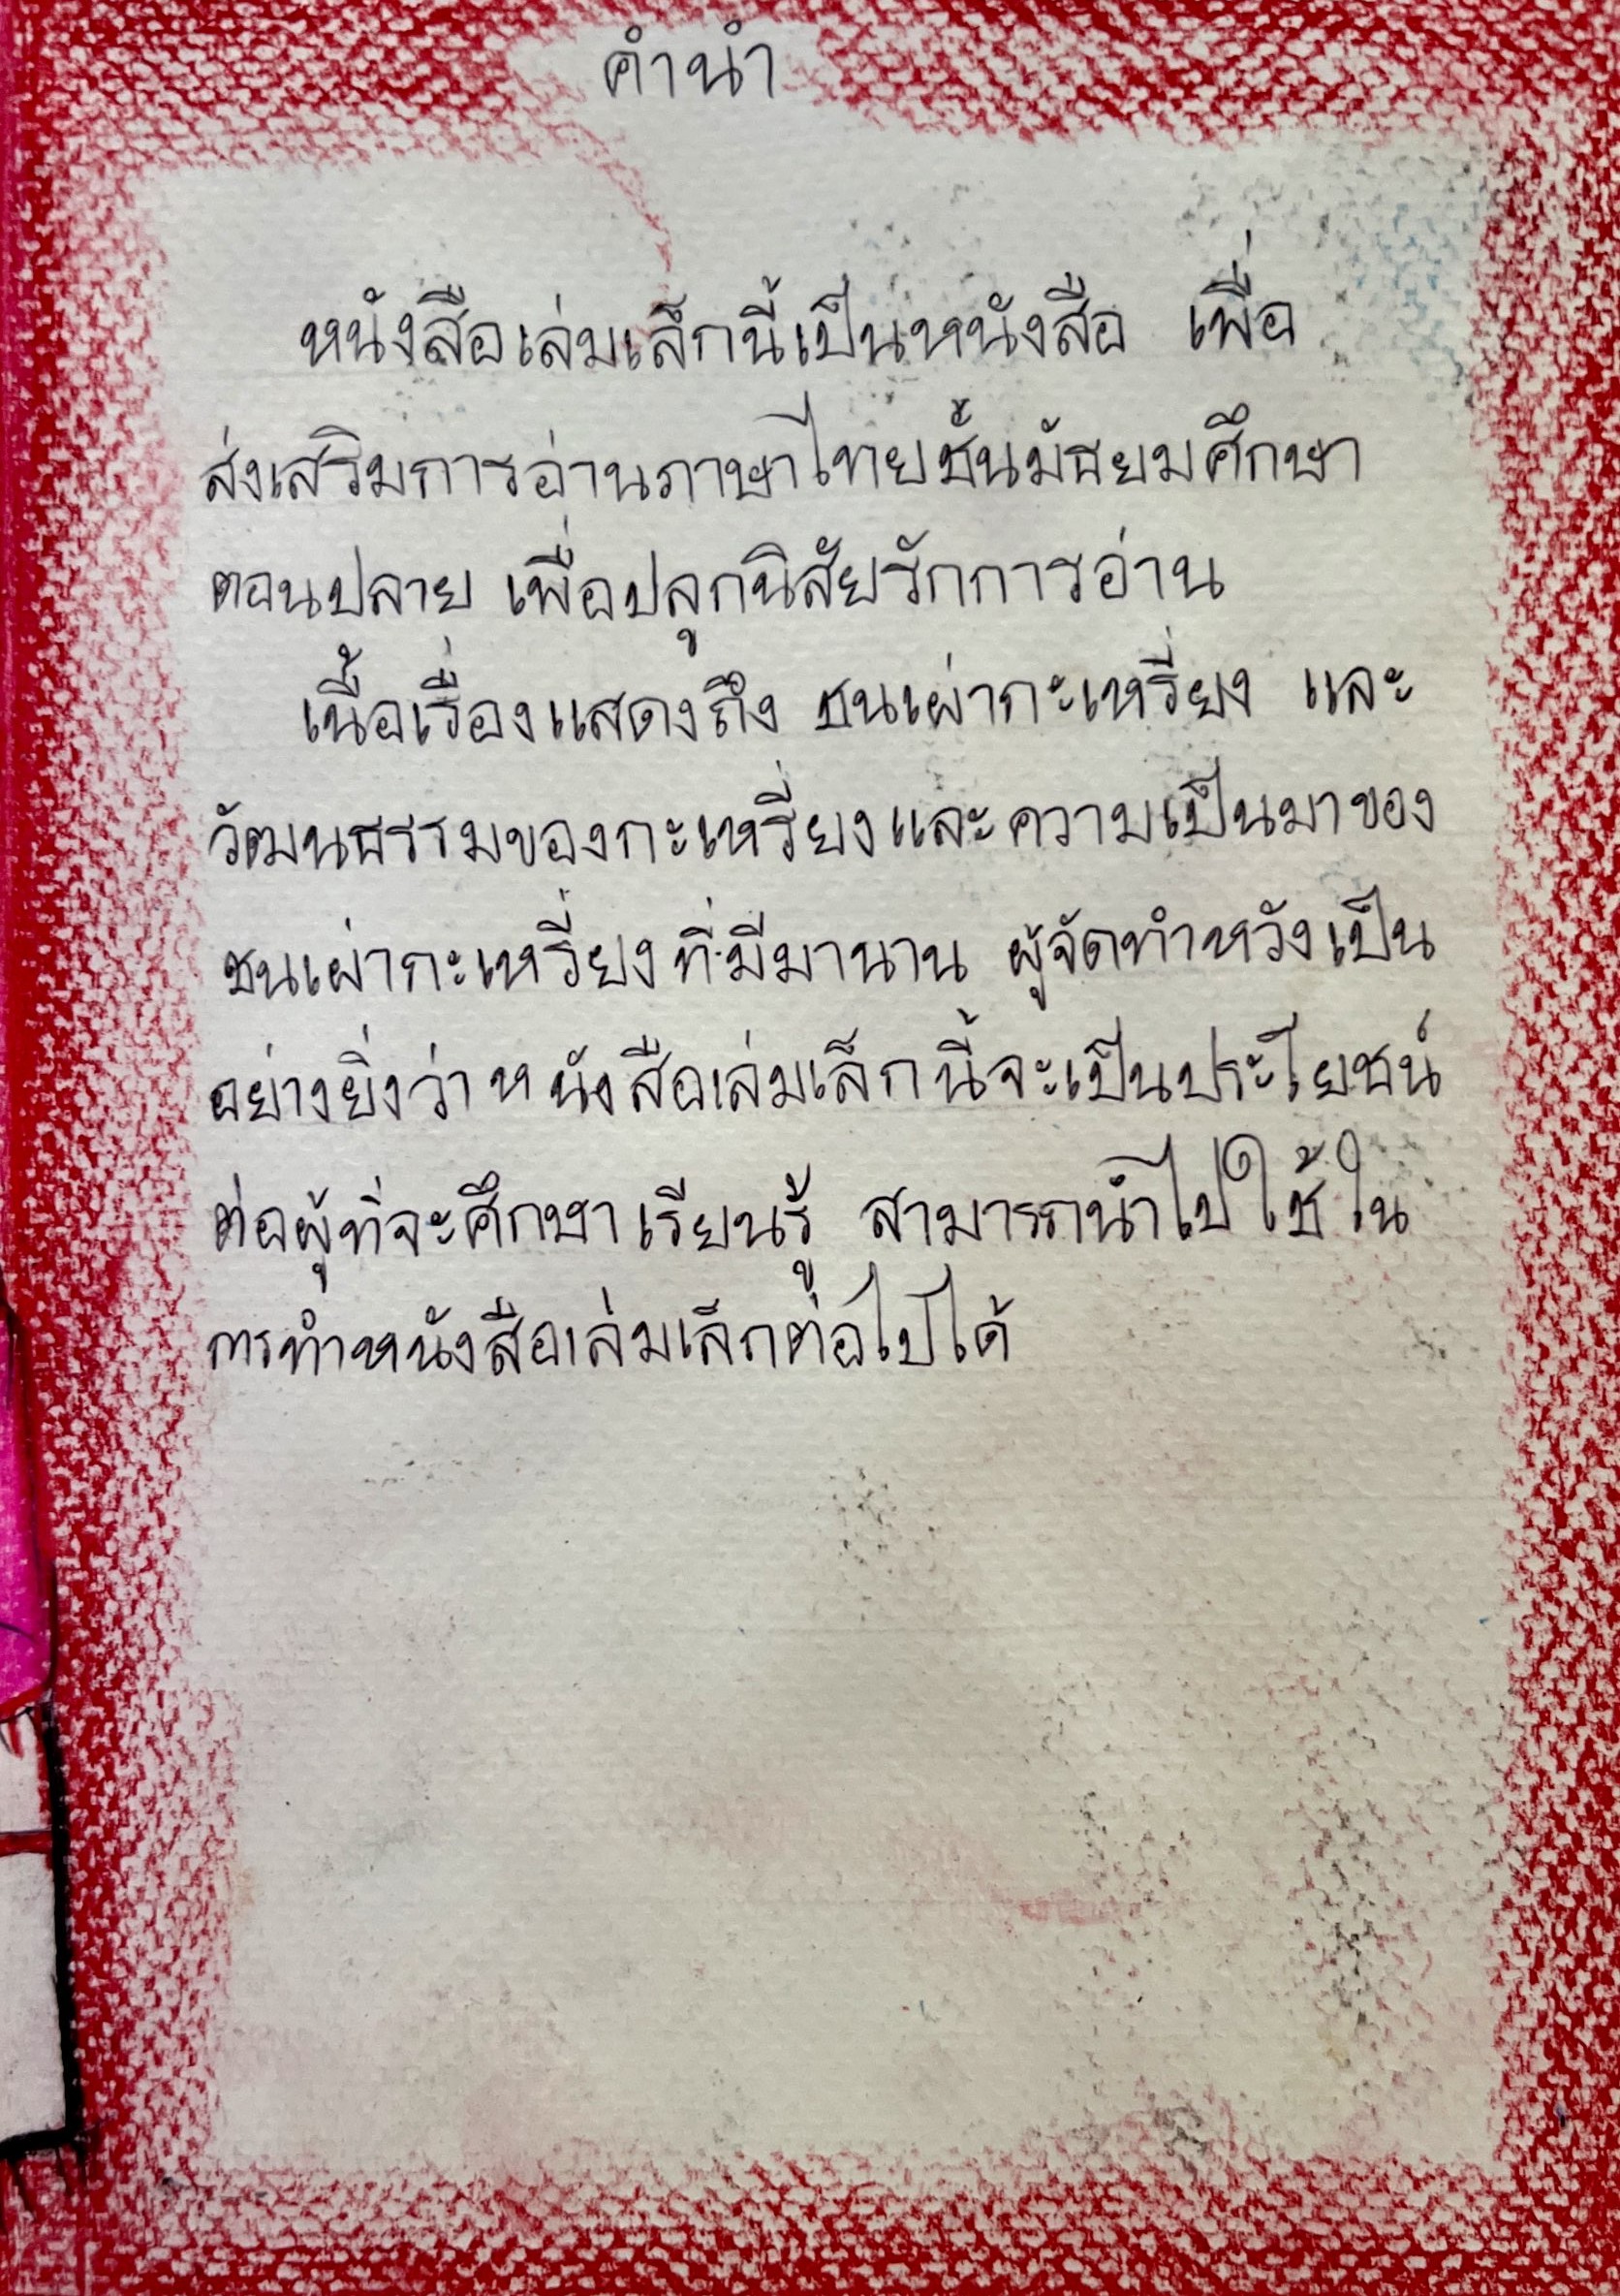 คำนำ
หนังสือเล่มเล็กนี้เป็นหนังสือ เพื่อ
ส่งเสริมการอ่านภาษาไทยชั้นมัธยมศึกษา
ตอนปลาย เพื่อปลูกนิสัยรักการอ่าน
เนื้อเรื่องแสดงถึง ชนเผ่ากะเหรี่ยง และ
วัฒนธรรมของกะเหรี่ยงและความเป็นมาของ
ชนเผ่ากะเหรี่ยงที่มีมานาน ผู้จัดทำหวังเป็น
อย่างยิ่งว่าหนังสือเล่มเล็กนี้จะเป็นประโยชน์
ต่อผู้ที่จะศึกษาเรียนรู้ สามารถนำไปใช้ใน
การทำหนังสือเล่มเล็กต่อไปได้